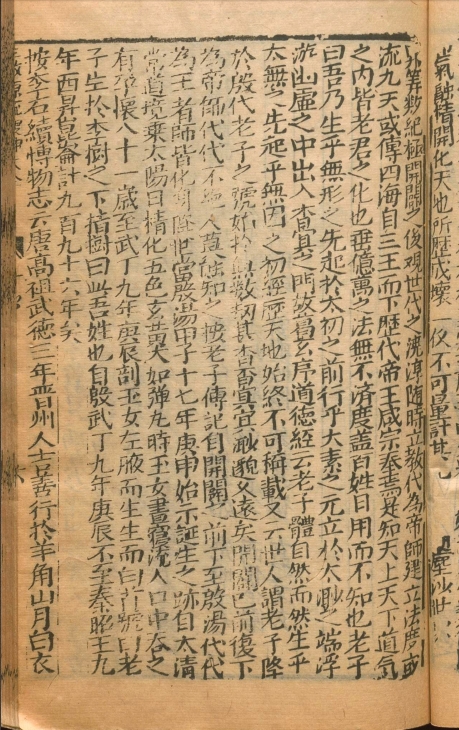 氣融情開化天地所歷成壞 不可量計其
塵沙世
外算數紀極開闢之後觀世代之澆淳隨時立教代為帝師建立法度或
流九天或傳四海自三王而下歷代帝王咸宗奉焉是知天上天下道氣
之内皆老君之化也垂億萬之法無不濟度盖百姓日用而不知也老子
曰吾乃生乎無形之先起於太初之前行乎大素之元立於太渺之端浮
游幽虛之中出入杳冥之門故葛玄序道德經云老子體自然而然生乎
太無之先起乎無因之初經歷天地始終不可稱載又云世人謂老子降
於殷代老子之號始於無數刼其杳杳冥冥渺邈久遠矣開闢已前復下
為帝師代代不絕人莫能知之按老子傳記自開闢之前下至殷湯代代
為王者師皆化身降世當殷湯甲子十七年庚申始示誕生之跡自太清
常道境乘太陽日精化五色玄黃大如彈丸時玉女晝寢流入口中吞之
有孕懷八十一歲至武丁九年庚辰剖玉女左腋而生生而白首號曰老
子生於李樹之下指樹曰此吾姓也自殷武丁九年庚辰不至秦昭王九
年西昇崑崙計九百九十六年矣
按李石續愽物志云唐高祖武德三年晋州人吉善行於羊角山見白衣